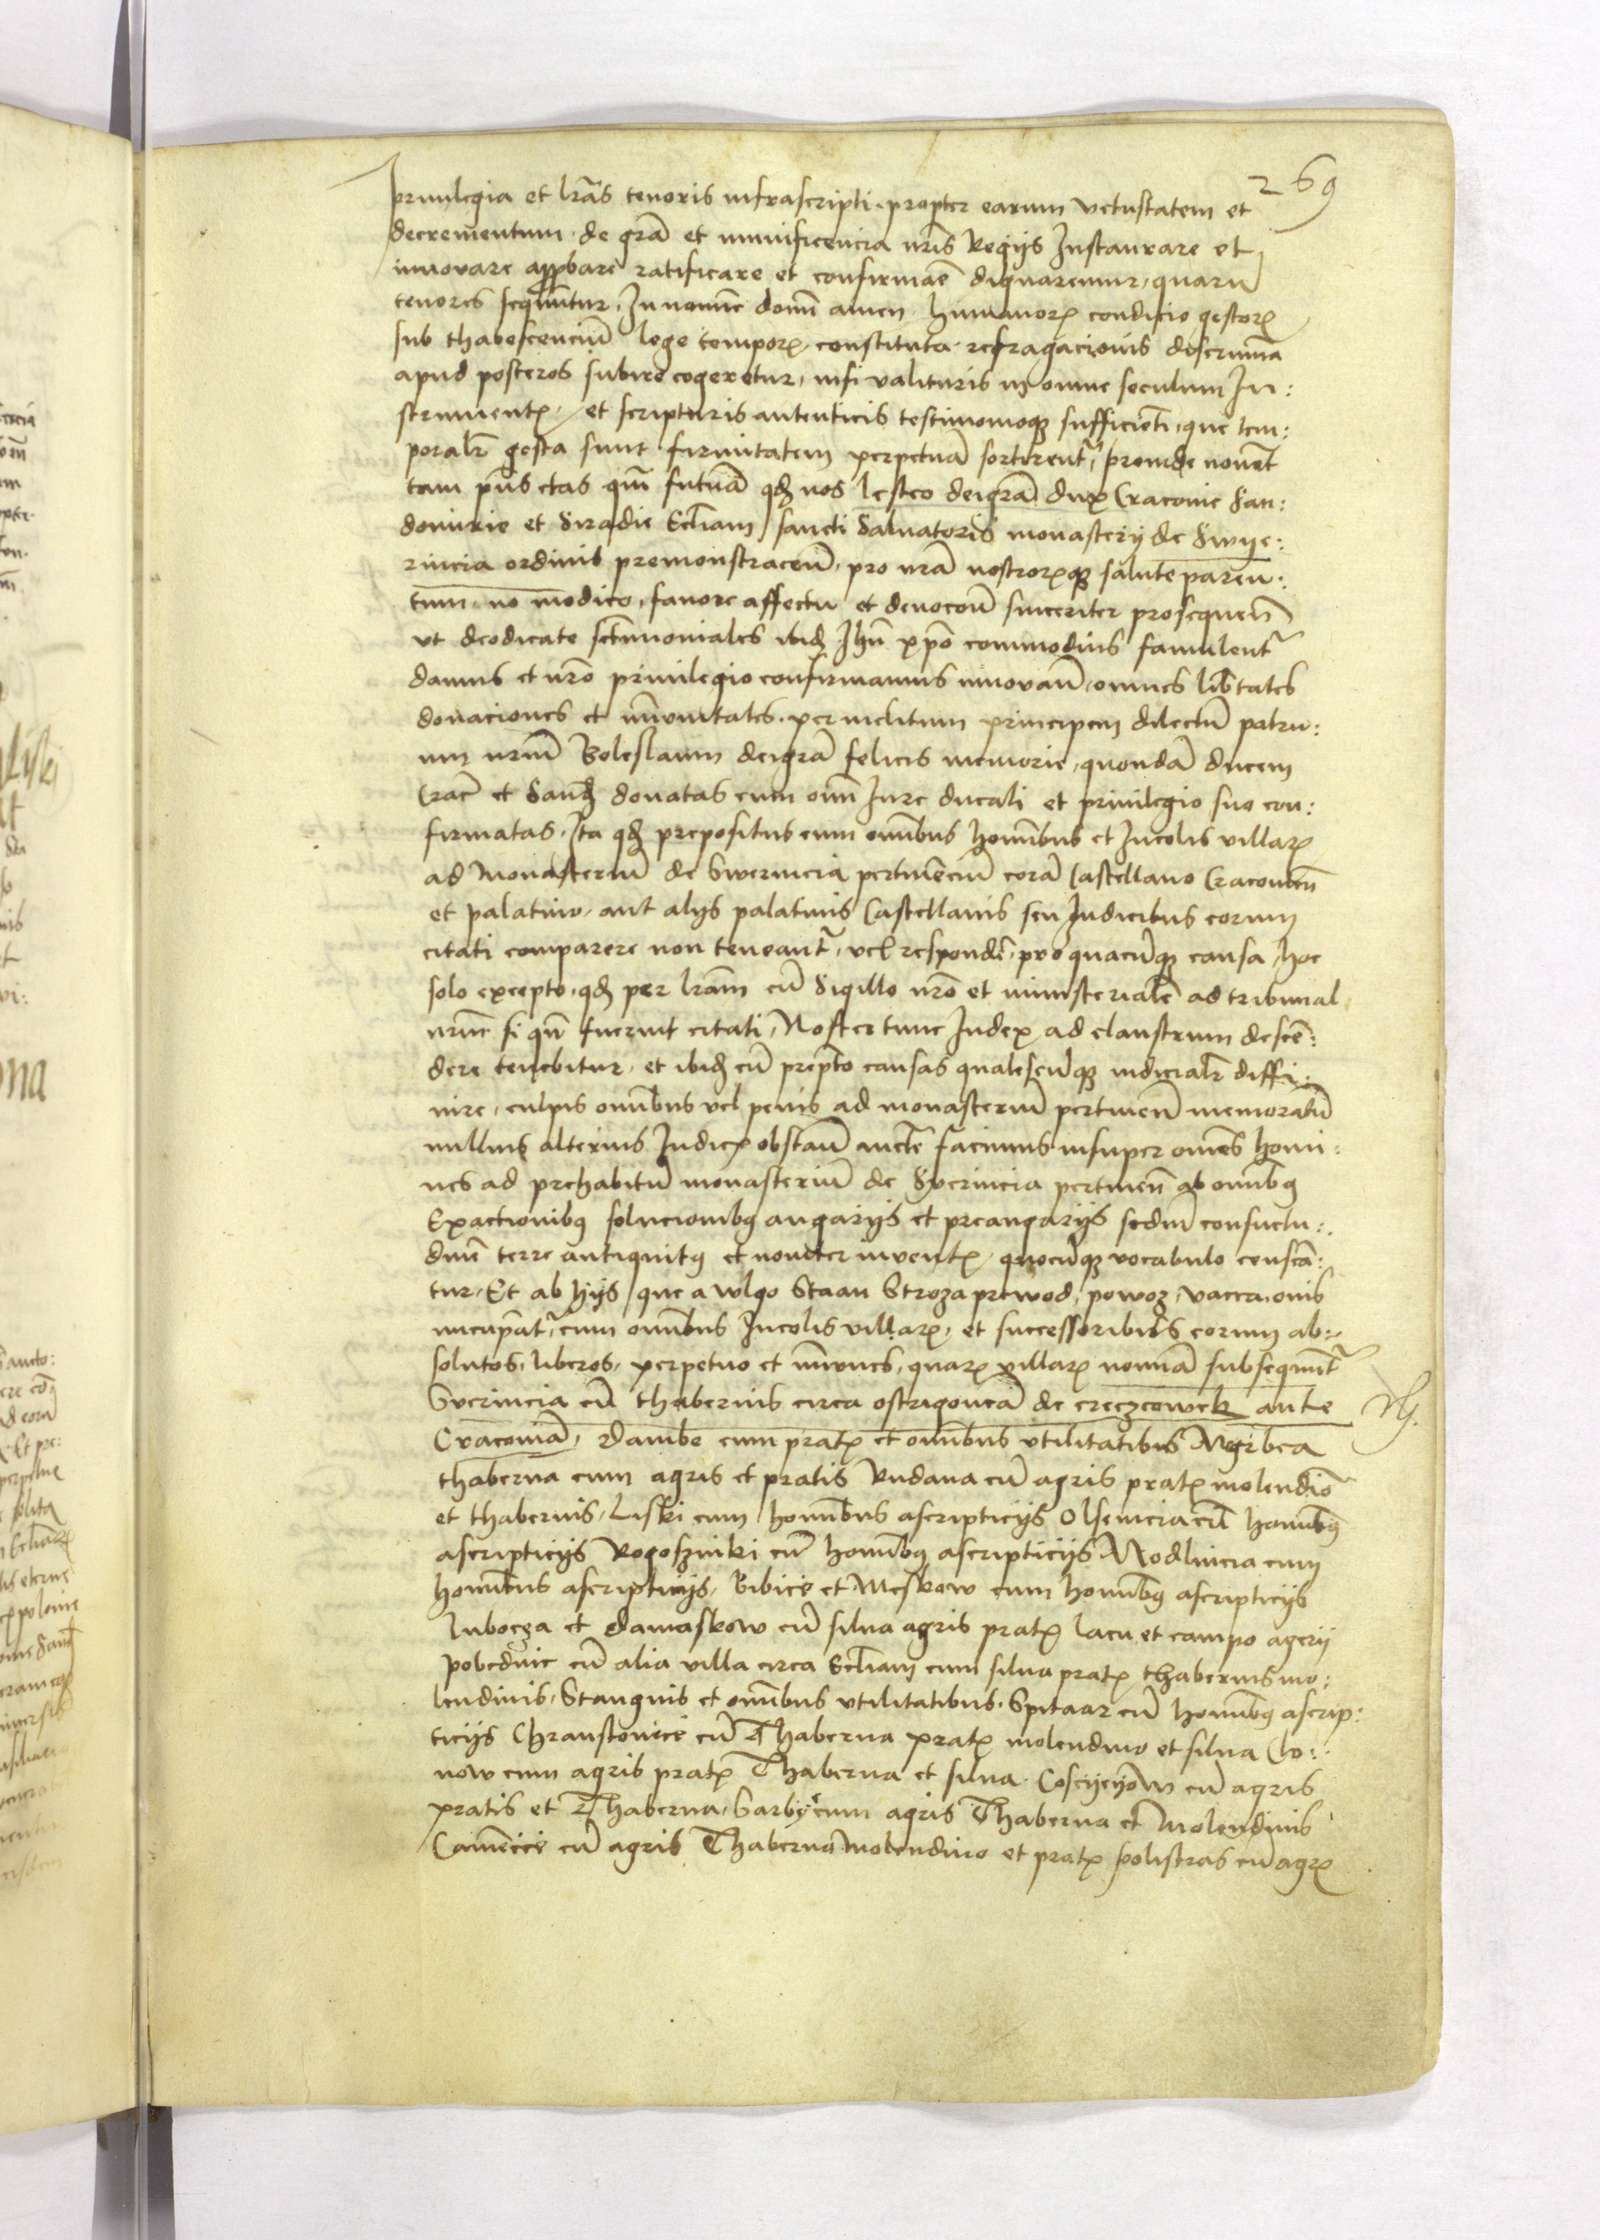 269
priuilegia et lr̃as tenoris infrascripti, propter earum vetustatem et
decrementum, de grã et munificencia nr̃is Regijs Instaurare et
innovare approbare ratificare et confirmare dignaremur, quarũ
tenores sequũtur, In nomĩe domĩ amen, humanorꝝ condicio gestorꝝ
sub thabescenciũ lege temporꝝ constituta refragacionis discrimĩa
apud posteros subire cogeretur, nisi valituris in omne seculum In:
strumentꝭ, et scripturis autenticis testimonioqꝫ sufficienti, que tem:
poralr̃ gesta sunt firmitatem perpetuã sortirentr̃, proinde nouẽt
tam pñs etas qm̃ futurã qđ nos lesteo dei grã dux Cracouie San:
domirie et Siradie Eccl̃iam sancti Saluatoris monasterij de Swye:
rincia ordinis premonstraceñ, pro nr̃a nostrorꝝqꝫ salute paren:
tum, nõ modico, fauore affectu et deuocõn sinceriter prosequeñ
vt deodicate sctĩmoniales ibiđ Jhũ xp̃o commodius famulentr̃
damus et nr̃o priuilegio confirmamus innouañ, omnes libt̃ates
donaciones et im̃unitates, per inclitum principem dilectũ patru:
um nrũm Boleslaum dei grã felicis memorie, quondã ducem
Crac̃ et Sanđ donatas cum omĩ Iure ducali et priuilegio suo con:
firmatas, Ita qđ prepositus cum omĩbus homĩbus et Incolis villarꝝ
ad Monasteriũ de Swerincia pertinẽciũ corã Castellano Cracouieñ
et palatino, aut alijs palatinis Castellanis seu Iudicibus eorum
citati comparere non teneantr̃, vel respondẽ, pro quacũqꝫ causa, hoc
solo excepto, qđ per lr̃am cũ Sigillo nr̃o et ministerialẽ ad tribunal
nrũm si qñ fuerint citati, Noster tunc Iudex ad claustrum descẽ:
dere tenebitur, et ibiđ cũ prep̃to causas qualescũqꝫ iudicialr̃ diffi:
nire, culpis omĩbus vel penis ad monasteriũ pertineñ memoratũ
nullius alterius Iudicꝭ obstañ aucte facimus insuper omẽs homi:
nes ad prehabitũ monasteriũ de Swerincia pertineñ ab omĩbꝰ
Exactionibꝰ solucionibꝰ angarijs et preangarijs secđm consuetu:
dinẽ terre antiquitꝰ et nouiter inventꝭ, quocũqꝫ vocabulo censeã:
tur, Et ab hijs, que a wlgo Staan Stroza prewod, powoz, vacca, ouis
nũcupãtr̃, cum omĩbus Incolis villarꝝ, et successoribus eorum ab:
solutos, liberos, perpetuo et im̃unes, quarꝝ villarꝝ nomĩa subsequũtr̃
Swerincia cũ thabernis circa ostrigoneã de creczcowek ante
Cracouiã, Dambe cum pratꝭ et omĩbus vtilitatibus
thaberna cum agris et pratis Rudaua cũ agris pratꝭ molendĩo
et thabernis, Liski cum homĩbus ascripticijs Olsenicia cũ homĩbꝰ
ascripticijs Rogoszniki cũ homĩbꝰ ascripticijs Modlnicia cum
homĩbus ascripticijs, Bibice et Meskow cum homĩbꝰ ascripticijs
luborza et Damaskow cũ silua agris pratꝭ lacu et campo agerij
pobednic cũ alia villa circa Eccl̃iam cum silua pratꝭ thabernis mo:
lendinis, Stangnis et omĩbus vtilitatibus, Spitaar cũ homĩbꝰ ascrip:
ticijs Chranstouice cũ Thaberna pratꝭ molendino et silua Clo:
now cum agris pratꝭ Thaberna et silua, Coscijeyow cũ agris
pratis et Thaberna, Garby cum agris Thaberna et Molendinis
Camẽice cũ agris Thaberna molendino et pratꝭ polistras cũ agrꝭ